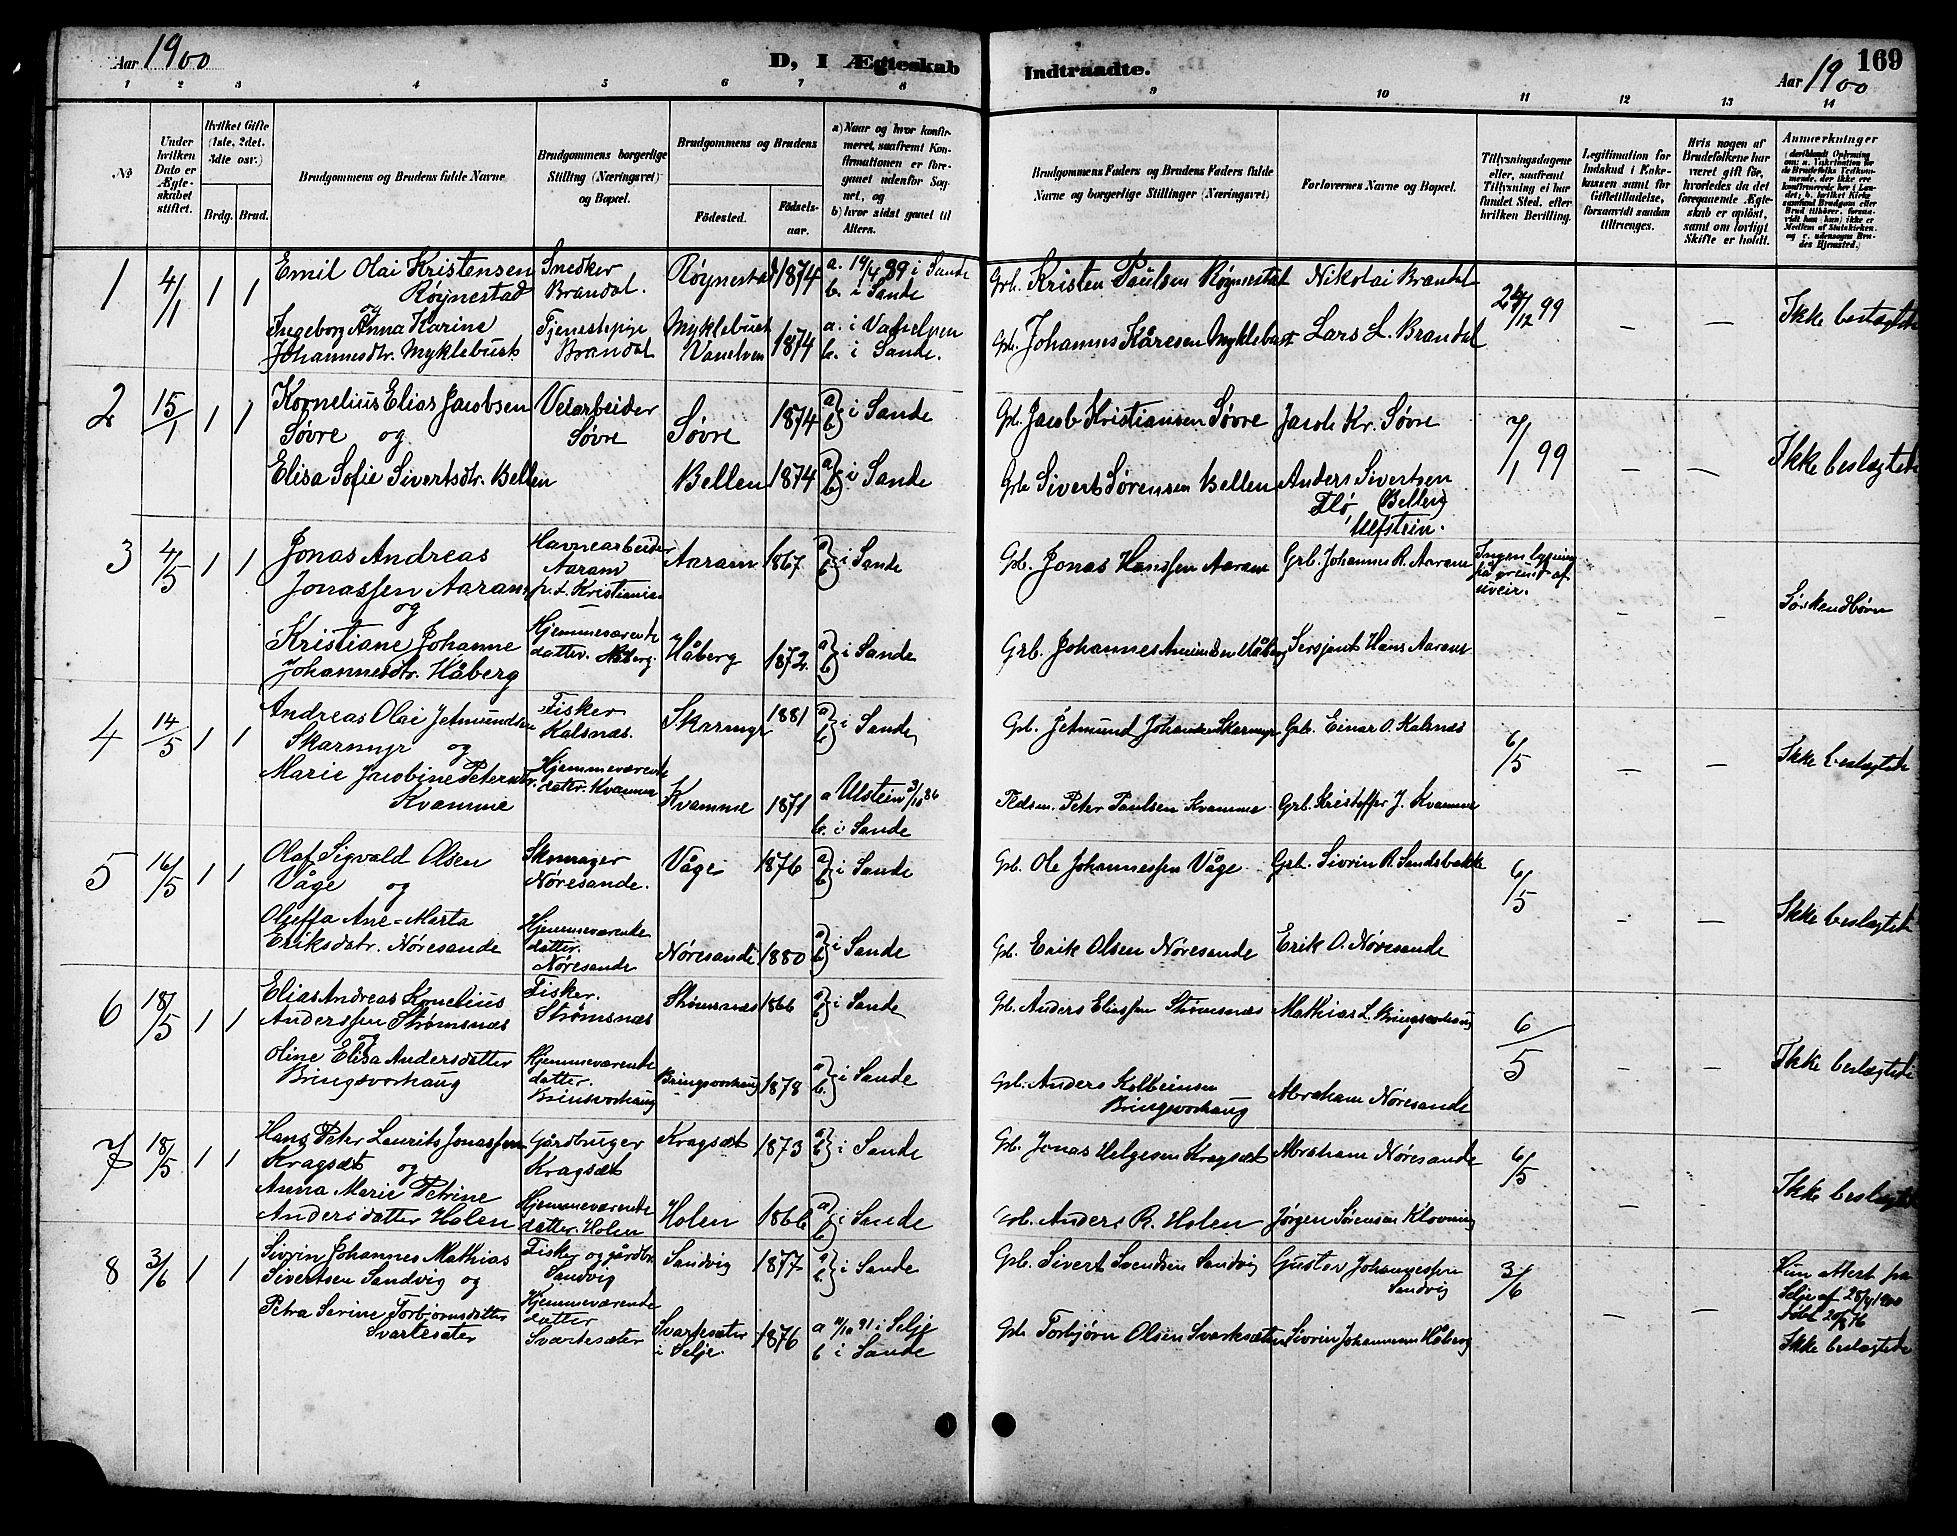 Aar 1900
D, I Ægteskab
Indtraadte.
169
Aar 1900
1 2 3 4 5 6 7 8
9 10 11 12 13 14
№
Under hvilken Dato er Ægteskabet stiftet.
Hvilket Gifte (1ste, 2det, 3die osv.)
Brdg. Brud.
Brudgommens og Brudens fulde Navne
Brudgommens borgerlige Stilling (Næringsvei) og Bopæl.
Brudgommens og Brudens
Fødested.
Fødselsaar.
a) Naar og hvor konfirmeret, saafremt Konfirmationen er foregaaet udenfor Sognet, og
b) hvor sidst gaaet til Alters.
Brudgommens Faders og Brudens Faders fulde Navne og borgerlige Stillinger (Næringsvei)
Forlovernes Navne og Bopæl.
Tillysningsdagene eller, saafremt Tillysning ei har fundet Sted, efter hvilken Bevilling.
Legitimation for Indskud i Enkekassen samt for Giftetilladelse, forsaavidt saadan tiltrænges.
Hvis nogen af Brudefolkene har været gift før, hvorledes da det foregaaende Ægteskab er opløst, samt om lovligt Skifte er holdt.
Anmerkninger
1 4/1 1 1
Emil Olai Kristensen
Røynestad
og
Ingeborg Anna Karine
Johannesdtr. Myklebust
Snedker
Brandal.
Tjenestepige
Brandal
Røynestad 1874
Myklebust
Vanelven 1874
a. 14/4 89 i Sande
b. i Sande
a. i Vanelven
b. i Sande.
Grb. Kristen Paulsen Røynestad
Grb. Johannes Kåresen Myklebust
Nikolai Brandal
Lars L. Brandal
26/12 99
Ikke beslegtede
2 15/1 1 1
Kornelius Elias Jacobsen
Søvre og
Elisa Sofie Sivertsdtr. Bellen
Veiarbeider
Søvre
Søvre 1874
Bellen 1874
a b } i Sande
a b } i Sande
Grb. Jacob Kristiansen Søvre
Grb Sivert Sørensen Bellen
Jacob Kr. Søvre
Anders Sivertsen
Flø, (Bellen)
Ulfstein.
7/1 99
Ikke beslegtede
3 4/5 1 1
Jonas Andreas
Jonassen Aaram
og
Kristiane Johanne
Johannesdtr. Håberg
Havnearbeider
Aaram
p.t. Kristiania
Hjemmeværende
datter. Håberg.
Aaram 1867
Håberg 1872
a b } i Sande
a b } i Sande
Grb. Jonas Hanssen Aaram
Grb. Johannes Amundsen Håberg
Grb. Johannes R. Aaram
Sersjant Hans Aaram
Ingen lysning
på grund af
uveir.
Søskendbørn
4 14/5 1 1
Andreas Olai Jetmundsen
Skarmyr og
Marie Jacobine Petersdtr.
Kvamme
Fisker
Kalsnæs.
Hjemmeværende
datter. Kvamme
Skarmyr 1881
Kvamme 1871
a b } i Sande
a Ulstein 3/10 86
b. i Sande
Grb. Jetmund Johansen Skarmyr
Fledsm. Peter Paulsen Kvamme
Grb. Einar O. Kalsnæs
Grb. Kristoffer J. Kvamme
6/5
Ikke beslegtede
5 16/5 1 1
Olaf Sigvald Olsen
Våge og
Oleffa Ane-Marta
Eriksdatr. Nøresande
Skomager
Nøresande.
Hjemmeværende
datter.
Nøresande
Våge 1876
Nøresande 1880
a b } i Sande
a b } i Sande
Grb. Ole Johannessen Våge
Grb. Erik Olsen Nøresande
Grb. Sivrin R. Sandsbakk
Erik O. Nøresande
6/5
Ikke beslegtede
6 18/5 1 1
Elias Andreas Kornelius
Anderssen Strømsnæs
og
Oline Elisa Andersdatter
Bringsvorhaug
Fisker.
Strømsnæs
Hjemmeværende
datter.
Brinsvorhaug
Strømsnæs 1866
Bringsvorhaug 1878
a b } i Sande
a b } i Sande
Grb. Anders Eliassen Strømsnæs
Grb. Anders Kolbeinsen
Bringsvorhaug
Mathias L. Bringsvorhaug
Abraham Nøresande
6/5
Ikke beslegtede
7 18/5 1 1
Hans Peter Laurits Jonassen
Kragsæt og
Anna Marie Petrine
Andersdatter Holen
Gårdbruger
Kragsæt
Hjemmeværende
datter. Holen
Kragsæt 1873
Holen 1866
a b } i Sande
a b } i Sande
Grb. Jonas Helgesen Kragsæt
Grb. Anders R. Holen
Abraham Nøresande
Jørgen Sørensen Klovning
6/5
Ikke beslegtede
8 3/6 1 1
Sivrin Johannes Mathias
Sivertsen Sandvig og
Petra Serine Torbjørnsdatter
Svartesæter
Fisker og gårdbr.
Sandvig
Hjemmeværende
datter
Svartesæter
Sandvig 1877
Svartesæter
i Selje. 1876
a b } i Sande
a 11/10 91 i Selje
b i Sande
Grb. Sivert Svendsen Sandvig
Grb Torbjørn Olsen Svartesæter
Gustav Johannessen
Sandvig
Sivrin Johannesen Håberg
3/6
Hun attest fra
Selje af 28/4 1900
Født 20/8 76
Ikke beslegtede